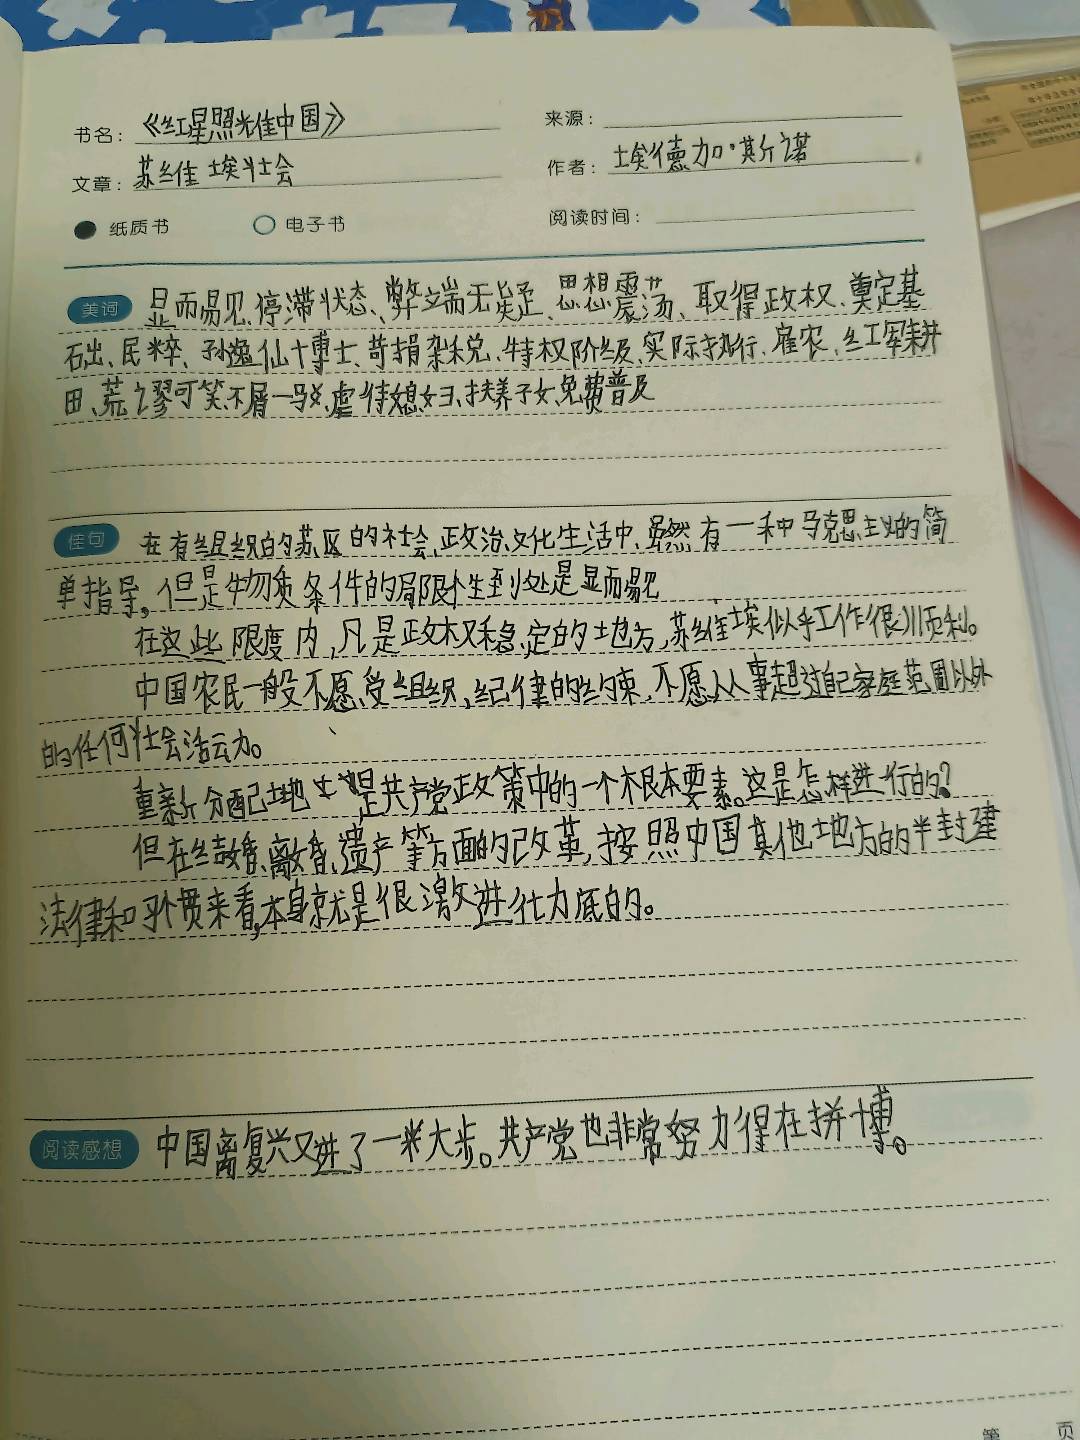 书名：《红星照耀中国》
来源：
文章：苏维埃社会
作者：埃德加·斯诺
纸质书 电子书
阅读时间：
美词 显而易见、停滞状态、弊端无疑、思想震荡、取得政权、奠定基
石出、民粹、孙逸仙博士、苛捐杂税、特权阶级、实际执行、雇农、红军耕
田、荒谬可笑、不屑一驳、虐待媳妇、扶养子女、免费普及
佳句 在有组织的苏区的社会、政治、文化生活中、虽然有一种马克思主义的简
单指导，但是物质条件的局限性到处是显而易见
在这些限度内，凡是政权稳定的地方，苏维埃似乎工作很顺利。
中国农民一般不愿受组织、纪律的约束，不愿从事超过自己家庭范围以外
的任何社会活动。
重新分配土地是共产党政策中的一个根本要素。这是怎样进行的？
但在结婚、离婚、遗产等方面的改革，按照中国其他地方的半封建
法律和习惯来看，本身就是很激进彻底的。
阅读感想 中国离复兴又进了一大步。共产党也非常努力得在拼博。
第 页